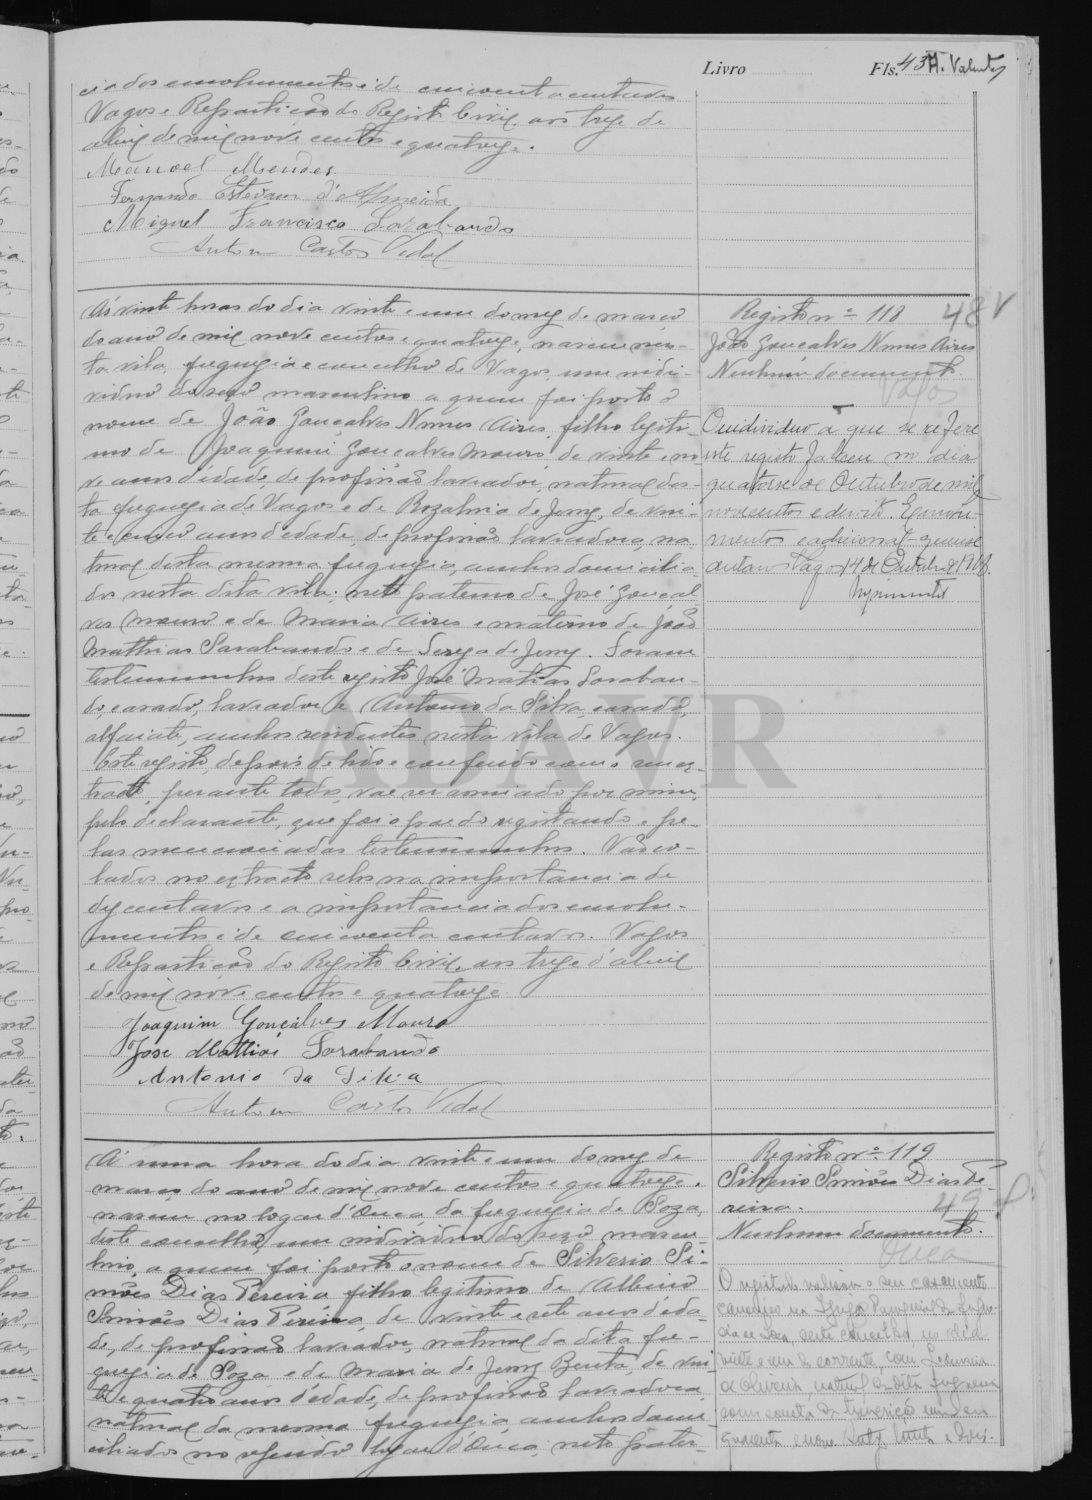 Livro Fls. 43
cia dos emolumentos é de cincoenta centavos
Vagos e Repartição do Registo Civil aos treze de
abril de mil nove centos e quatorze.
Manoel Mendes
Fernando Estevam d'Almeida
Miguel Francisco Sarabando
Antonio Carlos Vidal
Ás vinte horas do dia vinte e um do mez de março
do anno de mil nove centos e quatorze, nasceu nes-
ta vila, freguezia e concelho de Vagos um indi-
viduo do sexo masculino a quem foi posto o
nome de João Gonçalves Nunes Aires, filho legiti-
mo de Joaquim Gonçalves Mouro de vinte e no-
ve anos d'edade, de profissão lavrador, natural des-
ta freguezia de Vagos e de Rozalina de Jesus, de vin-
te e cinco anos d'edade, de profissão lavradora, na-
tural desta mesma freguezia, ambos domicilia-
dos nesta dita vila; neto paterno de José Gonçal
ves Mouro e de Maria Aires e materno de João
Mathias Sarabando e de Tereza de Jesus. Foram
testemunhas deste registo José Matias Saraban-
do, casado, lavrador e Antonio da Silva, casado,
alfaiate, ambos residentes nesta vila de Vagos.
Este registo, depois de lido e conferido com o seu ex-
tracto, perante todos, vae ser assinado por mim,
pelo declarante, que foi o pae do registando e pe-
las mencionadas testemunhas. Vão co-
lados no extracto selos na importancia de
dez centavos e a importancia dos emolu-
mentos é de cincoenta centavos. Vagos
e Repartição do Registo Civil, aos treze d'abril
de mil nove centos e quatorze
Joaquim Gonçalves Mouro
José Mattias Sarabando
Antonio da Silva
Antonio Carlos Vidal
Registo nº 118 48
João Gonçalves Nunes Aires
Nenhum documento.
Vagos
O individuo a que se refere
este registo faleceu no dia
quatorze de Outubro de mil
novecentos e dezoito.
mentos e adicional quinze
centavos Vagos 14 de Outubro
ADAVR
Á uma hora do dia vinte e um do mez de
março do anno de mil nove centos e quatorze,
nasceu no logar d'Ouca da freguezia de Soza,
deste concelho, um individuo do sexo mascu-
lino, a quem foi posto o nome de Silverio Si-
mões Dias Pereira filho legitimo de Albino
Simões Dias Pereira, de vinte e sete anos d'eda-
de, de profissão lavrador, natural da dita fre-
guezia de Soza e de Maria de Jesus Benta, de vin
te e quatro anos d'edade, de profissão lavradora
natural da mesma freguezia, ambos domi
ciliados no referido logar d'Ouca, neto pater-
Registo nº 119
Silverio Simões Dias Pe-
reira. 49
Nenhum documento.
Ouca
O registado realizou o seu casamento